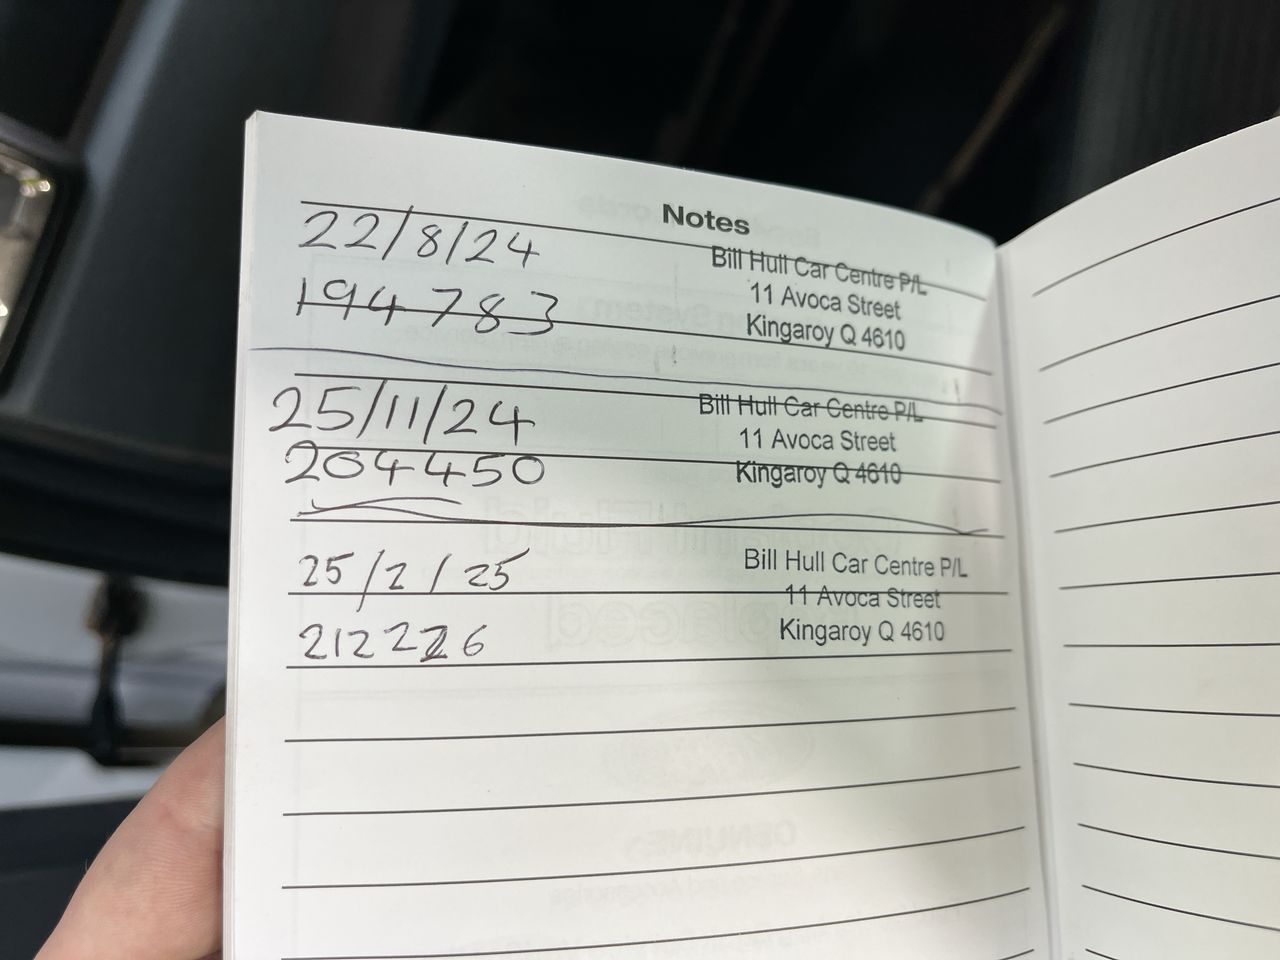 Notes
22/8/24
Bill Hull Car Centre P/L
11 Avoca Street
194783
Kingaroy Q 4610
25/11/24
Bill Hull Car Centre P/L
11 Avoca Street
204450
Kingaroy Q 4610
25/2/25
Bill Hull Car Centre P/L
11 Avoca Street
212226
Kingaroy Q 4610